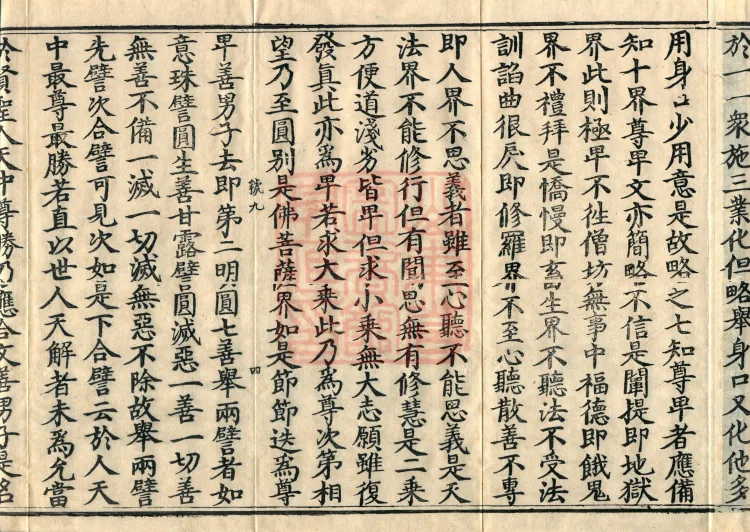 於一一衆施三業化但略舉身口又化他多
用身口少用意是故略之七知尊卑者應備
知十界尊卑文亦簡略不信是闡提即地獄
界此則極卑不徃僧坊無事中福德即餓鬼
界不禮拜是憍慢即畜生界不聽法不受法
訓諂曲很戾即修羅界不至心聽散善不專
即人界不思義者雖至心聽不能思義是天
法界不能修行但有聞思無有修慧是二乗
方便道淺劣皆卑但求小乗無大志願雖復
發真此亦爲卑若求大乗此乃爲尊次第相
望乃至圓別是佛菩薩界如是節節迭爲尊
號九
四
卑善男子去即第二明圓七善舉兩譬者如
意珠譬圓生善甘露譬圓滅惡一善一切善
無善不備一滅一切滅無惡不除故舉兩譬
先譬次合譬可見次如是下合譬云於人天
中最尊最勝若直以世人天解者未爲允當
於賢聖人天中尊勝乃應合文善男子是名